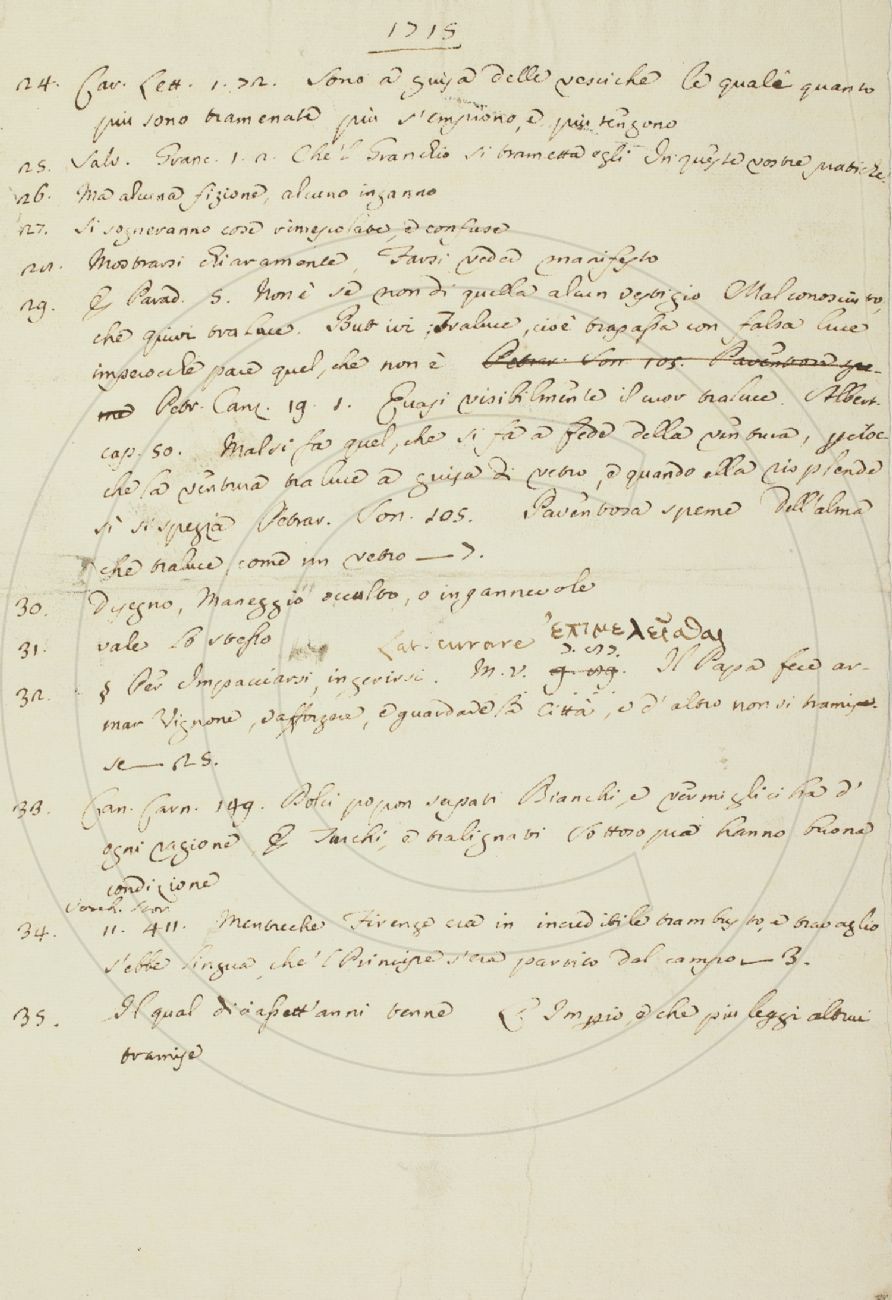 1715
24. Car. Lett. 1. 72. Sono a guisa delle vesciche le quali quanto
più sono tramenate più s'empiono, e più tengono
25. Salv. Granc. 1. 2. Che'l Granchio si trametta egli In queste vostre pratiche
26. Ma alcuna fizione, alcuno inganno
27. Si sogneranno cose rimescolate, e confuse
28. Mostrarsi chiaramente, Farsi vedere manifesto
29. E Parad. 5. Non è se non di quella alcun vestigio Mal conosciuto,
che quivi traluce. But ivi: Traluce, cioè trapassa con falsa luce
imperocchè pare quel, che non è Petrar. Son. 105. Paventosa spe-
me Petr. Canz. 19. 1. Quasi visibilmente il cuor traluce. Albert.
cap. 50. Malsi fa quel, che si fa a fede della ventura, peroc-
che la ventura traluce a guisa di vetro, e quando ella risplende
si si spezza Petrar. Son. 105. Paventosa speme dell'alma
che traluce, come un vetro — 7.
30. Disegno, Maneggio occulto, o ingannevole
31. vale lo stesso Lat. curare ἐπιμελεῖσθαι
32. § Per Impacciarsi, ingerirsi. M. V. Il Papa fece ar-
mar Vignone, e afforzare, e guardare la Città, e d'altro non si tramise-
se — 25.
33. Can. Carn. 149. Dolci popon Bianchi, e vermigli ci ha d'
ogni ragione E Turchi, e tralignati hanno buona
condizione
34. Varch. Stor. 11. 411. Mentreche Firenze era in incredibile trambusto, e travaglio
s'ebbe lingua, che'l Principe s'era partito dal campo — 3.
35. Il qual diciassett'anni tenne L' Impio, e che più leggi altrui
tramise